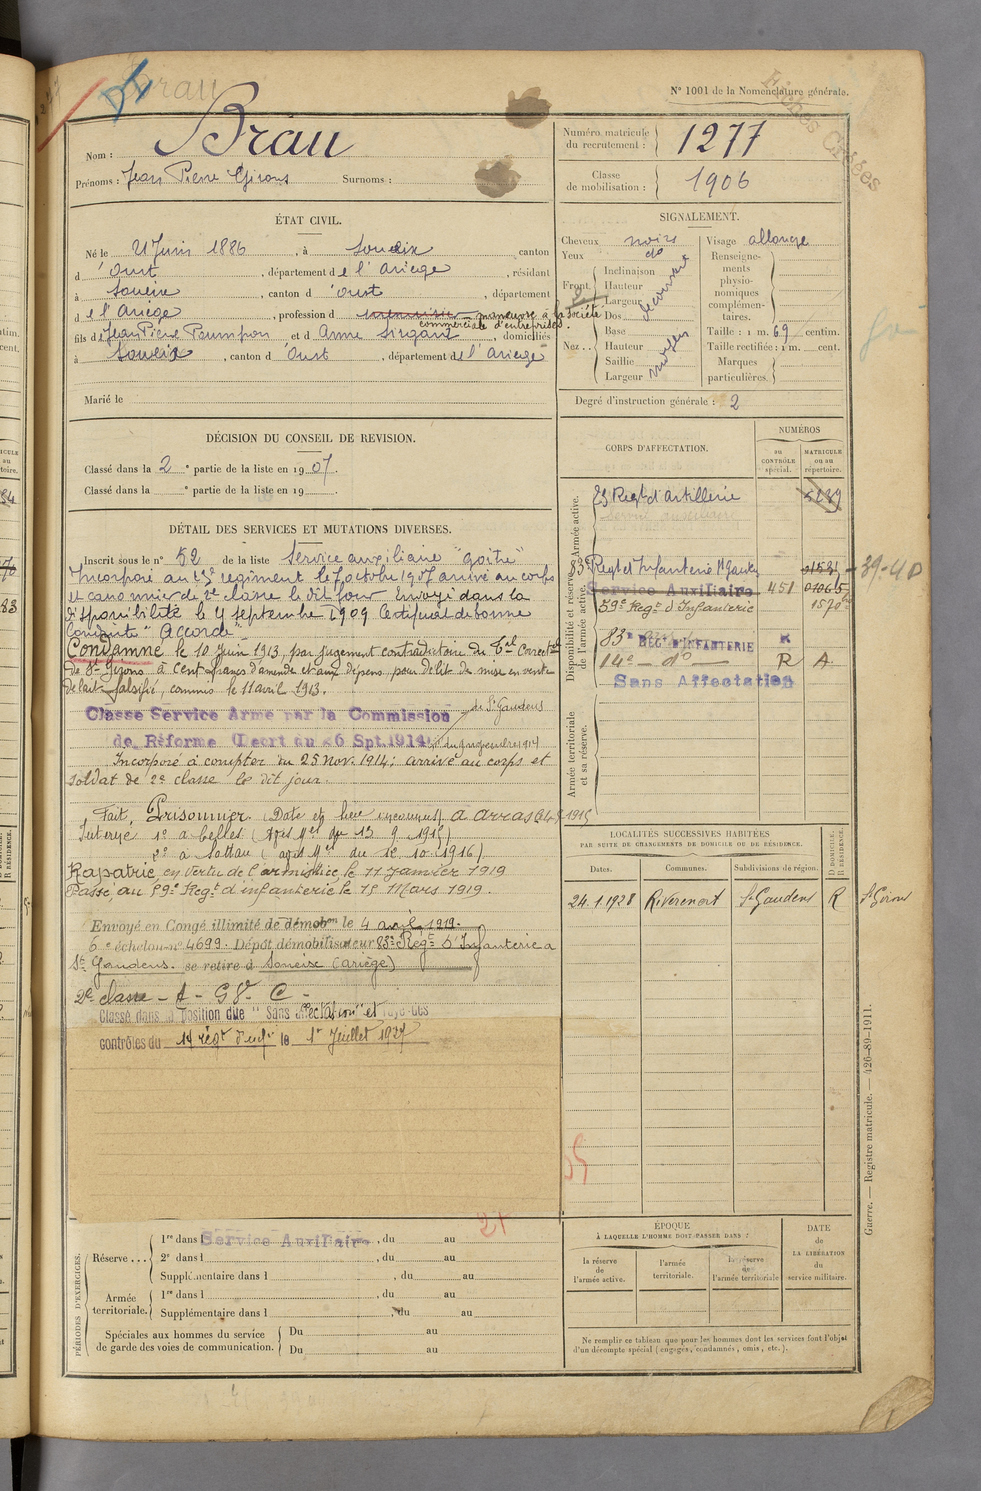 Brau
N° 1001 de la Nomenclature générale.
Fiches Croées
Nom : Brau
Prénoms : Jean Pierre Girons Surnoms :
Numéro matricule du recrutement : 1277
Classe de mobilisation : 1906
ÉTAT CIVIL.
Né le 21 Juin 1886, à Soueix, canton
d'Oust, département de l'Ariège, résidant
à Soueix, canton d'Oust, département
de l'Ariège, profession de manœuvre à la Société
commerciale d'entreprises.
fils de Jean Pierre Paumpon et d Anne Sirgant, domiciliés
à Soueix, canton d'Oust, département de l'Ariège
Marié le
SIGNALEMENT.
Cheveux noirs
Yeux do
Front Inclinaison
Hauteur
Largeur
Nez Dos
Base
Hauteur
Saillie
Largeur
Visage allongé
Renseignements physionomiques complémentaires.
Taille : 1 m. 69 centim.
Taille rectifiée : 1 m. cent.
Marques particulières.
Degré d'instruction générale : 2
DÉCISION DU CONSEIL DE REVISION.
Classé dans la 2e partie de la liste en 1907.
Classé dans la e partie de la liste en 19
DÉTAIL DES SERVICES ET MUTATIONS DIVERSES.
Inscrit sous le n° 52 de la liste Service auxiliaire "goitre"
Incorporé au 23e régiment le 7 octobre 1907 arrivé au corps
et canonnier de 2e classe le dit jour Envoyé dans la
disponibilité le 4 septembre 1909 Certificat de bonne
Conduite "Accordé"
Condamné le 10 Juin 1913, par jugement contradictoire du Tal Correctel
de St Girons à Cent francs d'amende et aux dépens, pour délit de mise en vente
de lait falsifié, commis le 11 avril 1913.
Classé Service Armé par la Commission de St Gaudens
de Réforme (Décret du 26 Spt. 1914) du 9 novembre 1914
Incorporé à compter du 25 Nov. 1914; arrivé au corps et
soldat de 2e classe le dit jour.
Fait Prisonnier (Date et lieu inconnus) à Arras
Interné 1° à Celles (avis du 13 9 1915)
2° à Soltau (avis du 12 10 1916)
Rapatrié en vertu de l'armistice le 11 janvier 1919
Passé au 59e Regt d'infanterie le 15 Mars 1919.
Envoyé en Congé illimité de démobon le 4 avril 1919.
6e échelon n° 4699. Dépôt démobilisateur 83e Régt d'Infanterie à
St Gaudens. se retire à Soueix (Ariège)
2e classe - A - GV - C -
Classé dans la position dite "Sans affectation" et rayé des
contrôles du 14 régt d'inf le 1er Juillet 1927
CORPS D'AFFECTATION.
NUMÉROS
au CONTRÔLE spécial.
MATRICULE ou au répertoire.
Armée active.
23 Regt d'artillerie
Disponibilité et réserve de l'armée active.
83e Regt d'Infanterie St Gaudens
Service Auxiliaire 451
59e Regt d'Infanterie 1570
83e REGt D'INFANTERIE R
14e do R A
Sans Affectation
39-40
Armée territoriale et sa réserve.
LOCALITÉS SUCCESSIVES HABITÉES
PAR SUITE DE CHANGEMENTS DE DOMICILE OU DE RÉSIDENCE.
Dates. Communes. Subdivisions de région. D DOMICILE. R RÉSIDENCE.
24.1.1928 Riverenert St Gaudens R St Girons
PÉRIODES D'EXERCICES.
Réserve... 1re dans l Service Auxiliaire, du au
2e dans l, du au
Supplémentaire dans l, du au
Armée territoriale. 1re dans l, du au
Supplémentaire dans l, du au
Spéciales aux hommes du service de garde des voies de communication. Du au
Du au
21
ÉPOQUE
À LAQUELLE L'HOMME DOIT PASSER DANS :
la réserve de l'armée active.
l'armée territoriale.
la réserve de l'armée territoriale
DATE de LA LIBÉRATION du service militaire.
Ne remplir ce tableau que pour les hommes dont les services font l'objet
d'un décompte spécial (engagés, condamnés, omis, etc.).
Guerre. — Registre matricule. — 426-89-1911.